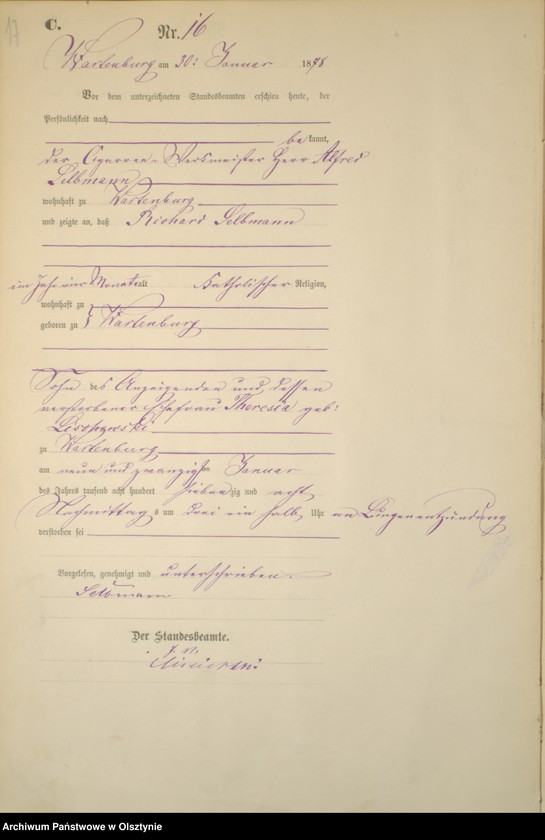 17
C.
Nr. 16
Wartenburg am 30ten Januar 1878
Vor dem unterzeichneten Standesbeamten erschien heute, der
Persönlichkeit nach
bekannt,
der Cigarren-Werkmeister Herr Alfred
Selbmann
wohnhaft zu Wartenburg
und zeigte an, daß Richard Selbmann
ein Jahr vier Monate alt katholischer Religion,
wohnhaft zu
geboren zu Wartenburg
Sohn des Anzeigenden und dessen
verstorbener Ehefrau Theresia geb:
zu Wartenburg
am neun und zwanzigsten Januar
des Jahres tausend acht hundert siebenzig und acht
Nachmittags um drei ein halb Uhr an Lungenentzündung
verstorben sei
Vorgelesen, genehmigt und unterschrieben
Selbmann
Der Standesbeamte.
Archiwum Państwowe w Olsztynie